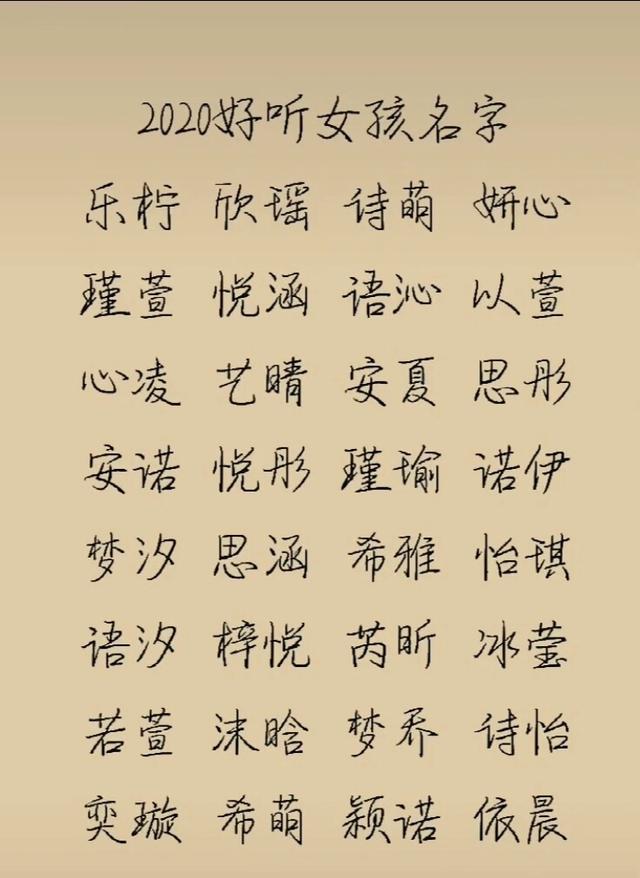 2020好听女孩名字
乐柠 欣瑶 诗萌 妍心
瑾萱 悦涵 语沁 以萱
心凌 艺晴 安夏 思彤
安诺 悦彤 瑾瑜 诺伊
梦汐 思涵 希雅 怡琪
语汐 梓悦 芮昕 冰莹
若萱 沫晗 梦乔 诗怡
奕璇 希萌 颖诺 依晨